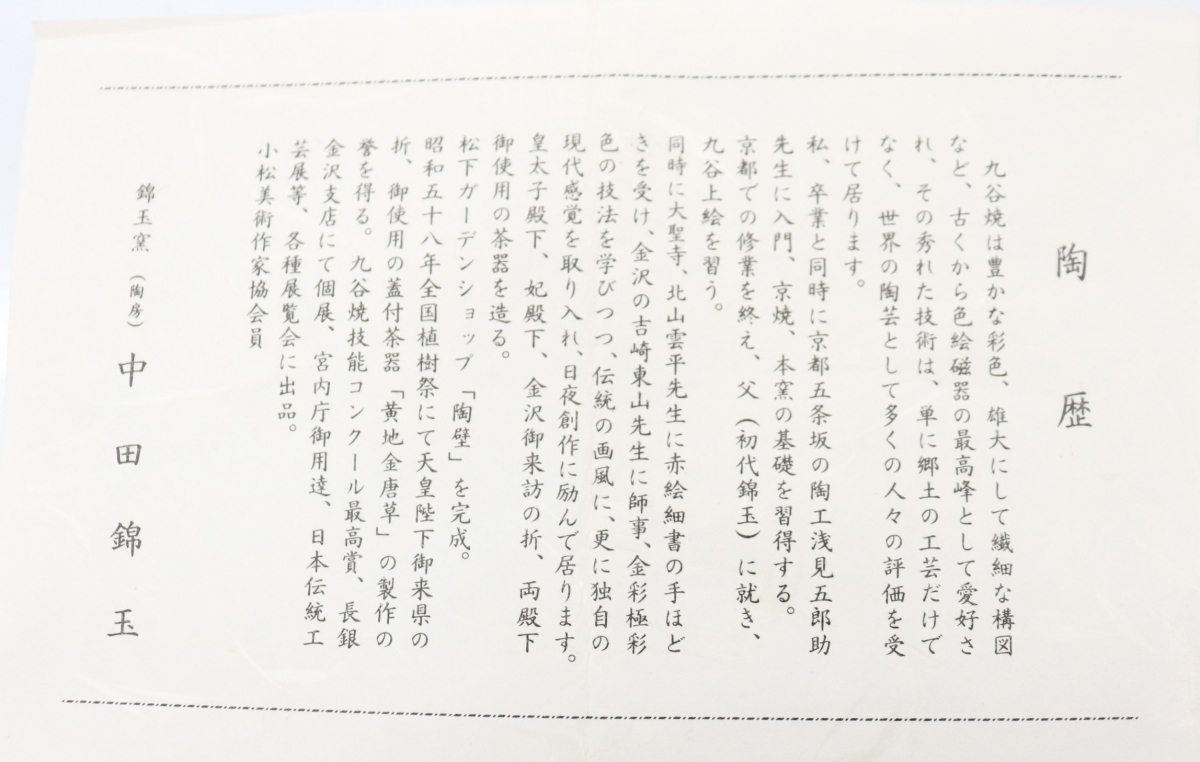 陶歴
九谷焼は豊かな彩色、雄大にして繊細な構図
など、古くから色絵磁器の最高峰として愛好さ
れ、その秀れた技術は、単に郷土の工芸だけで
なく、世界の陶芸として多くの人々の評価を受
けて居ります。
私、卒業と同時に京都五条坂の陶工浅見五郎助
先生に入門、京焼、本窯の基礎を習得する。
京都での修業を終え、父(初代錦玉)に就き、
九谷上絵を習う。
同時に大聖寺、北山雲平先生に赤絵細書の手ほど
きを受け、金沢の吉崎東山先生に師事、金彩極彩
色の技法を学びつつ、伝統の画風に、更に独自の
現代感覚を取り入れ、日夜創作に励んで居ります。
皇太子殿下、妃殿下、金沢御来訪の折、両殿下
御使用の茶器を造る。
松下ガーデンショップ「陶壁」を完成。
昭和五十八年全国植樹祭にて天皇陛下御来県の
折、御使用の蓋付茶器「黄地金唐草」の製作の
誉を得る。九谷焼技能コンクール最高賞、長銀
金沢支店にて個展、宮内庁御用達、日本伝統工
芸展等、各種展覧会に出品。
小松美術作家協会員
錦玉窯(陶房)中田錦玉